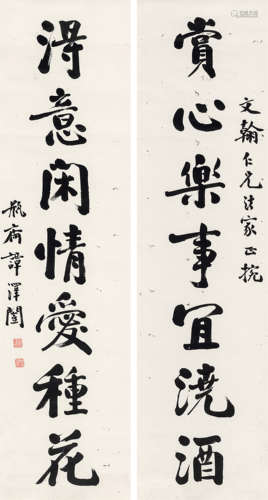 賞心樂事宜澆酒
文翰仁兄法家正捥
得意閑情愛種花
瓶齋譚澤闓